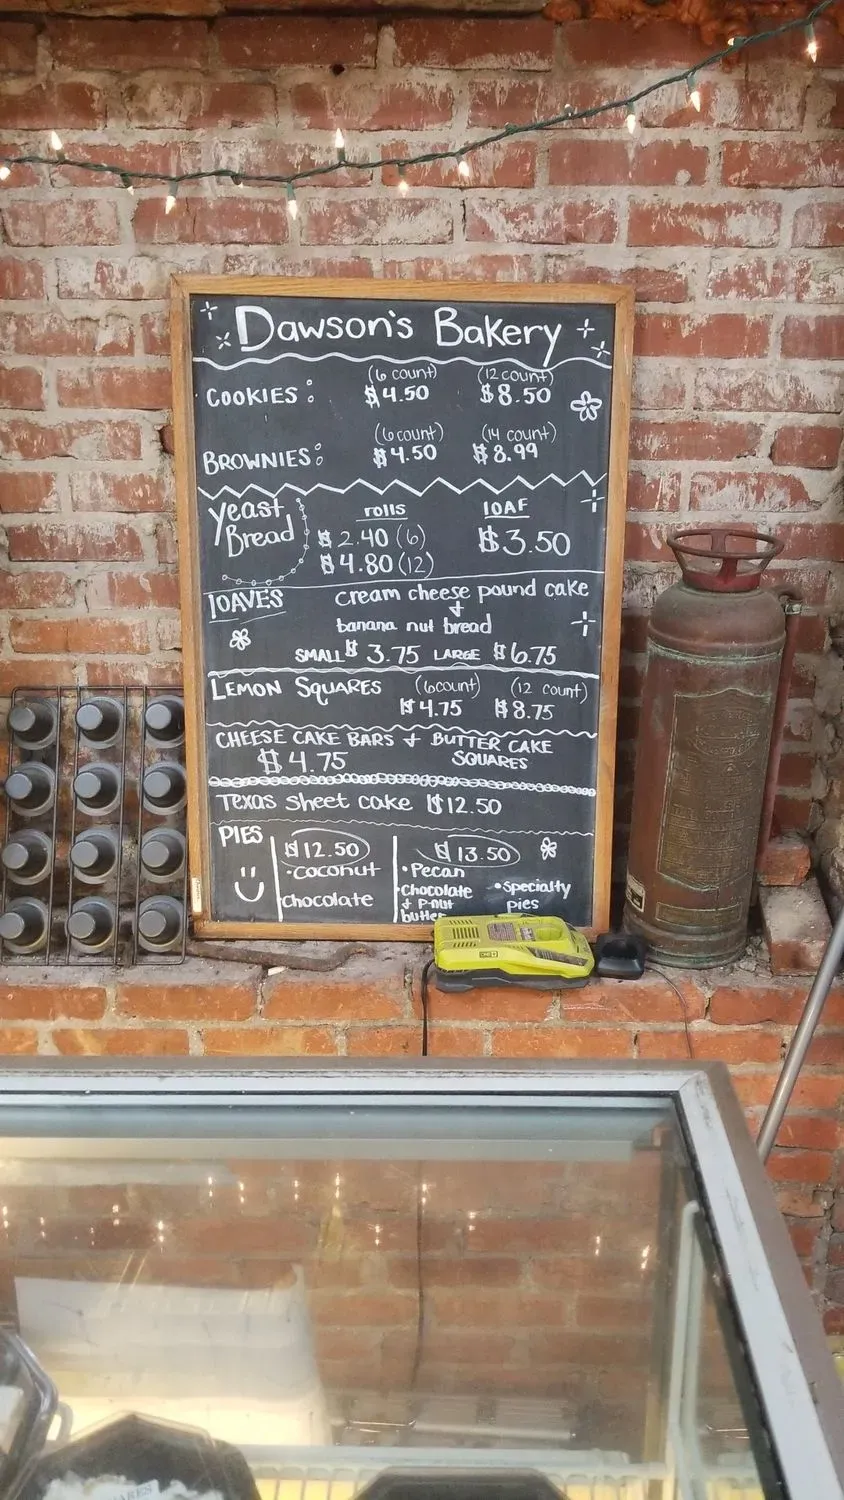 Dawson's Bakery
(6 count) (12 count)
COOKIES: $4.50 $8.50
(6 count) (14 count)
BROWNIES: $4.50 $8.99
Yeast Bread
rolls lOAF
$2.40 (6) $3.50
$4.80 (12)
lOAVES cream cheese pound cake
+
banana nut bread
SMALL $3.75 LARGE $6.75
LEMON SQUARES (6count) (12 count)
$4.75 $8.75
CHEESE CAKE BARS + BUTTER CAKE
$4.75 SQUARES
Texas sheet cake $12.50
PIES
$12.50 $13.50
•coconut •Pecan
chocolate •Chocolate •Specialty
+ P-nut pies
butter